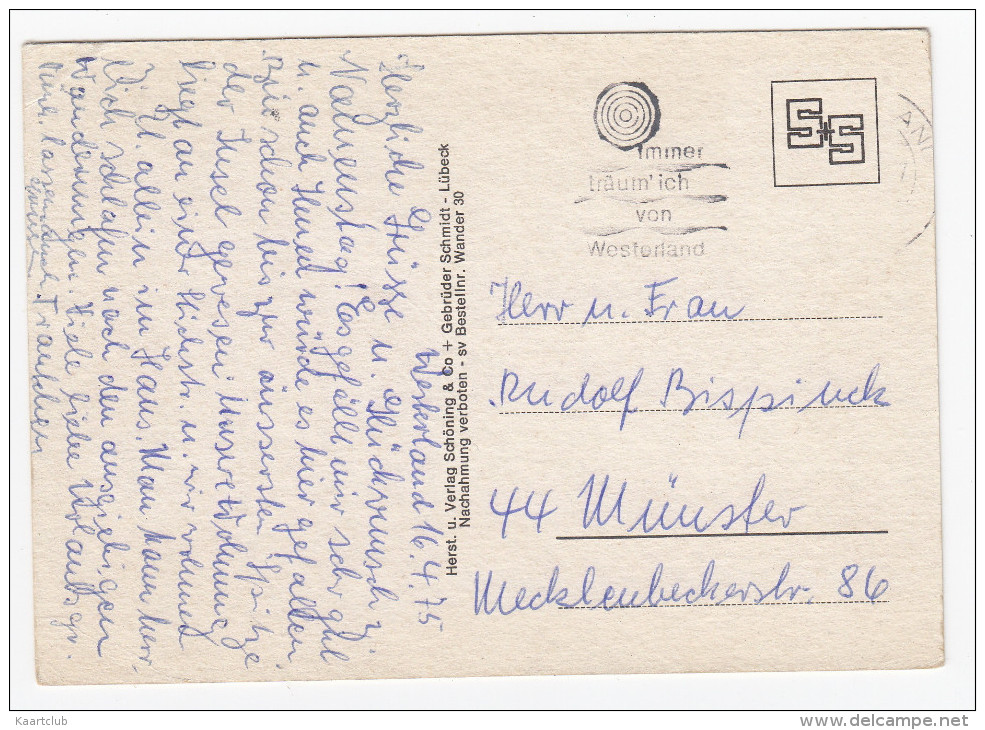 Westerland 16.4.75
Herzliche Grüsse u. Glückwunsch z.
Namenstag! Es gefällt mir sehr gut
u. auch Ihnen würde es hier gefallen
Bin schon bis zur äussersten Spitze
der Insel gewesen. Unsere Wohnung
liegt an einer Stichstr. u. wir wohnen
z. Zt. allein im Haus. Man kann herr-
lich schlafen nach den ausgiebigen
Wanderungen. Viele liebe Urlaubsgr.
Herst. u. Verlag Schöning & Co + Gebrüder Schmidt - Lübeck
Nachahmung verboten - sv Bestellnr. Wander 30
Immer
träum' ich
von
Westerland
S+S
AN
Herr u. Frau
Rudolf Bispinck
44 Münster
Mecklenbeckerstr. 86
Kaartclub
www.delcampe.net